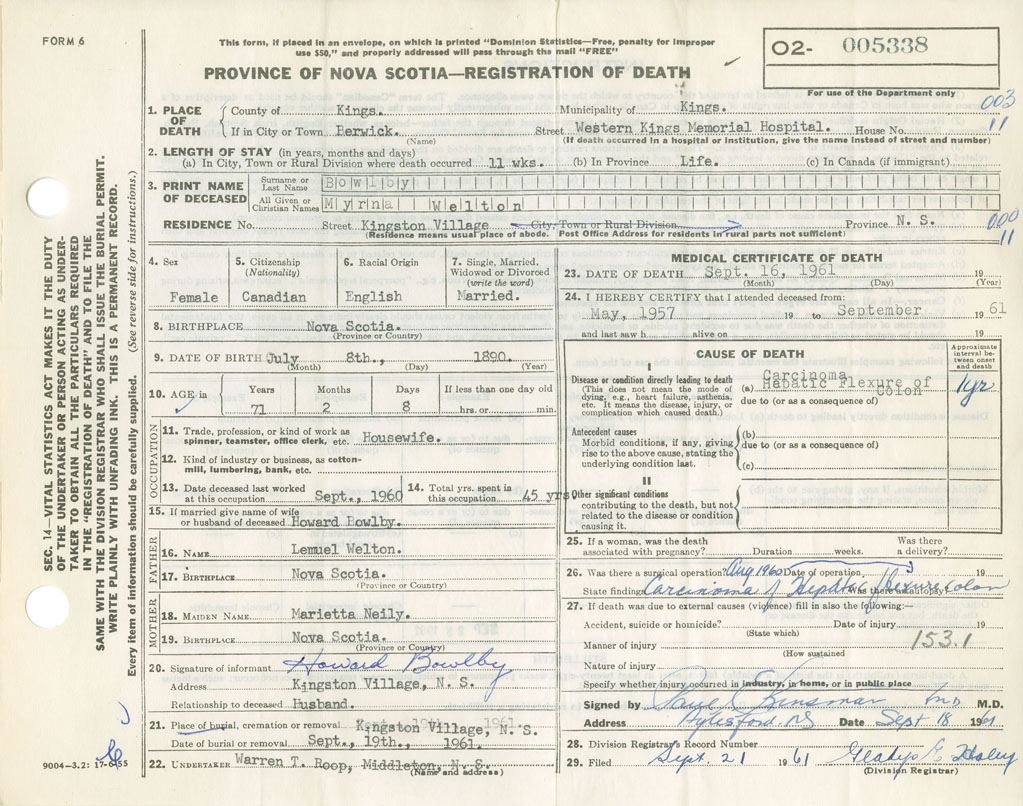 FORM 6
This form, if placed in an envelope, on which is printed "Dominion Statistics—Free, penalty for improper
use $50," and properly addressed will pass through the mail "FREE"
PROVINCE OF NOVA SCOTIA—REGISTRATION OF DEATH
02- 005338
For use of the Department only
003
11
1. PLACE OF DEATH
County of Kings. Municipality of Kings.
If in City or Town Berwick. Street Western Kings Memorial Hospital. House No.
(Name) (If death occurred in a hospital or institution, give the name instead of street and number)
2. LENGTH OF STAY (in years, months and days)
(a) In City, Town or Rural Division where death occurred 11 wks. (b) In Province Life. (c) In Canada (if immigrant)
3. PRINT NAME OF DECEASED
Surname or Last Name Bowlby
All Given or Christian Names Myrna Welton
RESIDENCE No. Street Kingston Village City, Town or Rural Division Province N. S.
(Residence means usual place of abode. Post Office Address for residents in rural parts not sufficient)
000
11
4. Sex
Female
5. Citizenship
(Nationality)
Canadian
6. Racial Origin
English
7. Single, Married,
Widowed or Divorced
(write the word)
Married.
8. BIRTHPLACE Nova Scotia.
(Province or Country)
9. DATE OF BIRTH July 8th., 1890.
(Month) (Day) (Year)
10. AGE in
Years Months Days If less than one day old
71 2 8 hrs. or min.
OCCUPATION
11. Trade, profession, or kind of work as
spinner, teamster, office clerk, etc. Housewife.
12. Kind of industry or business, as cotton-
mill, lumbering, bank, etc.
13. Date deceased last worked
at this occupation Sept., 1960
14. Total yrs. spent in
this occupation 45 yrs
15. If married give name of wife
or husband of deceased Howard Bowlby.
FATHER
16. NAME Lemuel Welton.
17. BIRTHPLACE Nova Scotia.
(Province or Country)
MOTHER
18. MAIDEN NAME Marietta Neily.
19. BIRTHPLACE Nova Scotia.
(Province or Country)
20. Signature of informant Howard Bowlby
Address Kingston Village, N. S.
Relationship to deceased Husband.
21. Place of burial, cremation or removal Kingston Village, N. S.
Date of burial or removal Sept., 19th., 1961.
22. UNDERTAKER Warren T. Roop, Middleton, N. S.
(Name and address)
MEDICAL CERTIFICATE OF DEATH
23. DATE OF DEATH Sept. 16, 1961 19
(Month) (Day) (Year)
24. I HEREBY CERTIFY that I attended deceased from:
May, 1957 19 to September 1961
and last saw h alive on 19
CAUSE OF DEATH
Approximate
interval be-
tween onset
and death
I
Disease or condition directly leading to death
(This does not mean the mode of
dying, e.g., heart failure, asthenia,
etc. It means the disease, injury, or
complication which caused death.)
Carcinoma
(a) Hepatic Flexure of
Colon
due to (or as a consequence of)
1yr
Antecedent causes
Morbid conditions, if any, giving
rise to the above cause, stating the
underlying condition last.
(b)
due to (or as a consequence of)
(c)
II
Other significant conditions
contributing to the death, but not
related to the disease or condition
causing it.
25. If a woman, was the death
associated with pregnancy? Duration weeks. Was there
a delivery?
26. Was there a surgical operation? Aug 1960 Date of operation 19
State findings Carcinoma of Hepatic flexure colon Was there autopsy?
27. If death was due to external causes (violence) fill in also the following:—
Accident, suicide or homicide? Date of injury 19
(State which)
Manner of injury 153.1
(How sustained
Nature of injury
Specify whether injury occurred in industry, in home, or in public place
Signed by Kinsman MD M.D.
Address Aylesford NS Date Sept 18 1961
28. Division Registrar's Record Number
29. Filed Sept. 21 1961 Gladys E
(Division Registrar)
SEC. 14—VITAL STATISTICS ACT MAKES IT THE DUTY
OF THE UNDERTAKER OR PERSON ACTING AS UNDER-
TAKER TO OBTAIN ALL THE PARTICULARS REQUIRED
IN THE "REGISTRATION OF DEATH" AND TO FILE THE
SAME WITH THE DIVISION REGISTRAR WHO SHALL ISSUE THE BURIAL PERMIT.
WRITE PLAINLY WITH UNFADING INK. THIS IS A PERMANENT RECORD.
Every item of information should be carefully supplied. (See reverse side for instructions.)
9004-3.2: 17-6-55